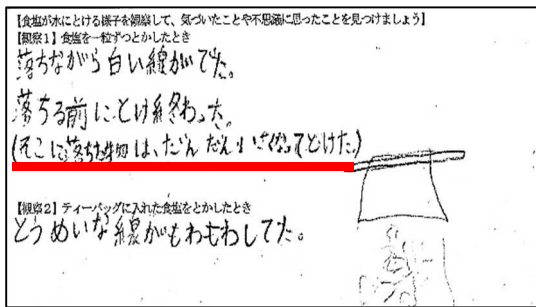 【食塩が水にとける様子を観察して、気づいたことや不思議に思ったことを見つけましょう】
【観察1】食塩を一粒ずつとかしたとき
落ちながら白い線がでた。
落ちる前にとけ終わった。
(そこに落ちた物は、だんだん小さくなってとけた。)
【観察2】ティーバッグに入れた食塩をとかしたとき
とうめいな線がもわもわしてた。